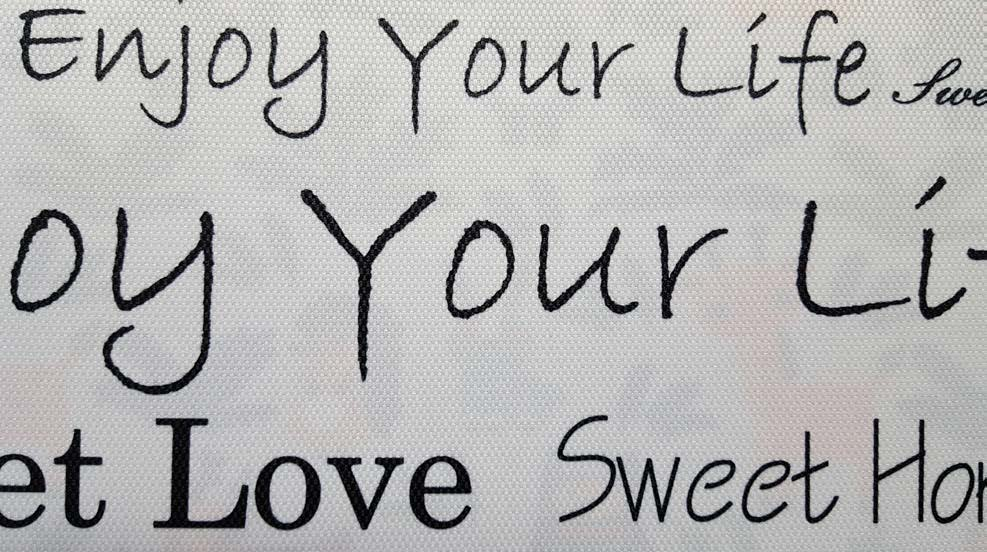 Enjoy Your Life Swe
oy Your Li
et Love Sweet Ho